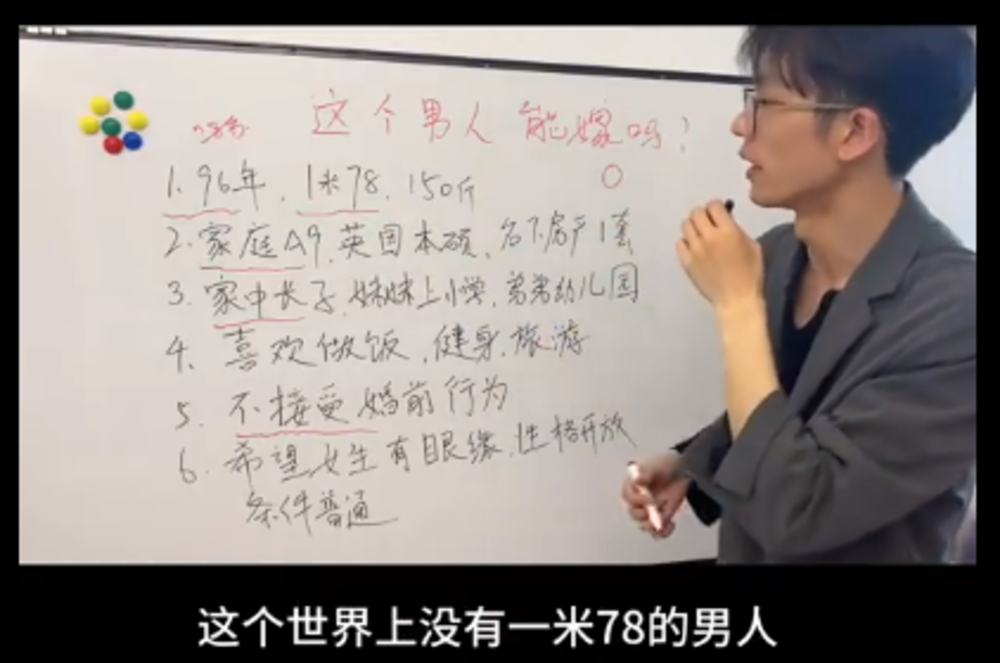 这个男人能嫁吗?
1. 96年, 1米78, 150斤
2. 家庭A9, 英国本硕, 名下房产1套
3. 家中长子, 妹妹上小学, 弟弟幼儿园
4. 喜欢做饭, 健身, 旅游
5. 不接受婚前行为
6. 希望女生有眼缘, 性格开放
条件普通
这个世界上没有一米78的男人